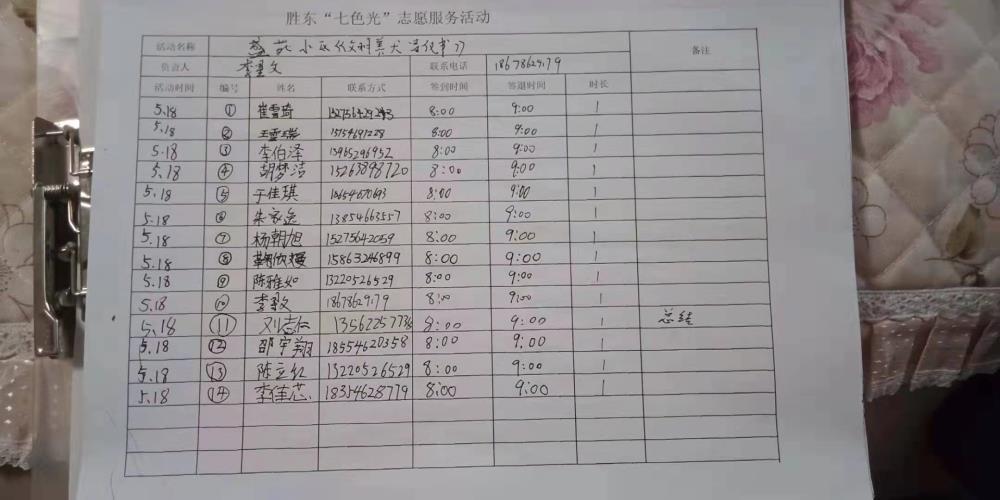 胜东“七色光”志愿服务活动
活动名称 小区 备注
负责人 李 文 联系电话 18678629179
活动时间 编号 姓名 联系方式 签到时间 签退时间 时长
5.18 ① 崔雪琦 8:00 9:00 1
5.18 ② 王雪瑞 15154691228 8:00 9:00 1
5.18 ③ 李伯泽 13965296952 8:00 9:00 1
5.18 ④ 胡梦洁 15263898720 8:00 9:00 1
5.18 ⑤ 于佳琪 8:00 9:00 1
5.18 ⑥ 朱家逸 13854663557 8:00 9:00 1
5.18 ⑦ 杨朝旭 15275642059 8:00 9:00 1
5.18 ⑧ 15863246899 8:00 9:00 1
5.18 ⑨ 陈雅如 13220526529 8:00 9:00 1
5.18 ⑩ 李 18678629179 8:00 9:00 1
5.18 ⑪ 刘志仁 8:00 9:00 1 总结
5.18 ⑫ 邵宇翔 18554620358 8:00 9:00 1
5.18 ⑬ 陈立红 13220526529 8:00 9:00 1
5.18 ⑭ 李佳芯 18354628779 8:00 9:00 1